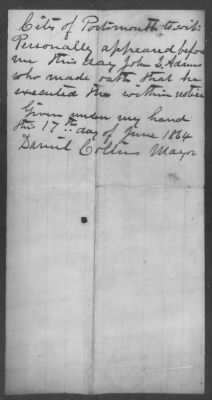 City of Portsmouth to wit:
Personally appeared before
me this day John Q. Adams
who made oath that he
executed the within notice
Given under my hand
this 17th day of June 1864
Daniel Collins Mayor